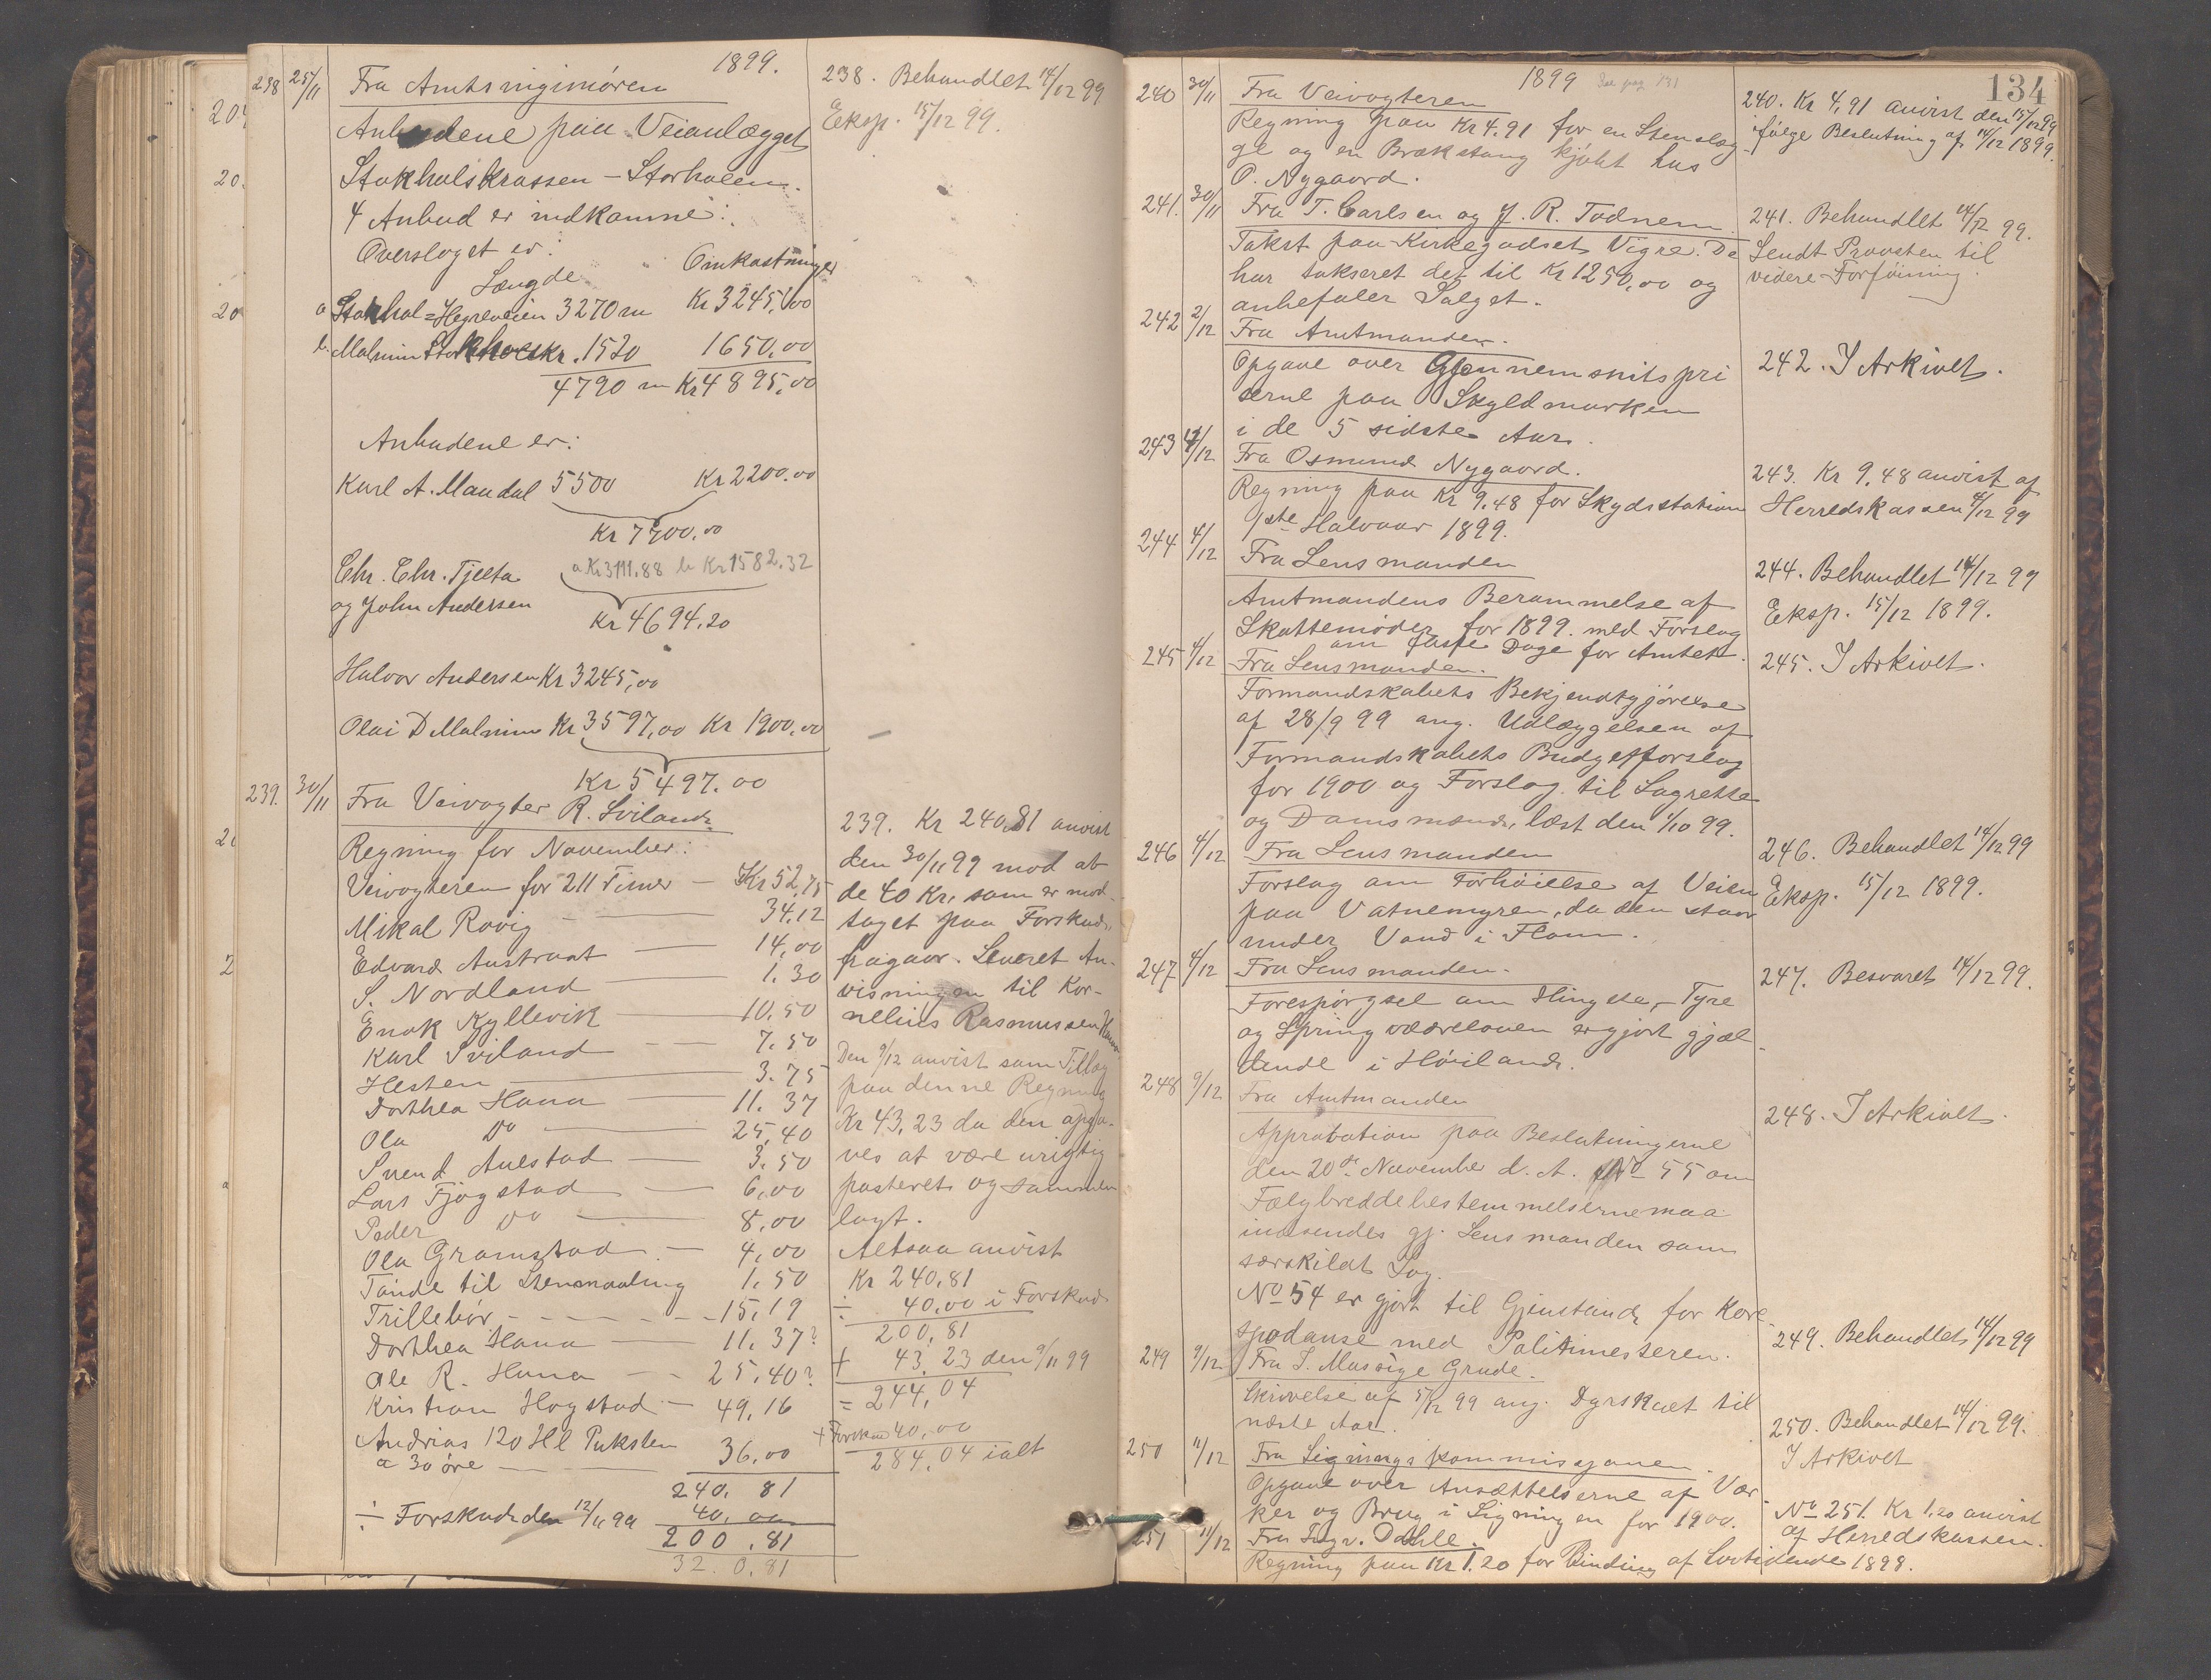 1899.
238 25/11 Fra Amtsinginiøren
Anbudene paa Veianlægget
Stokholskrossen – Storhalen.
4 Anbud er indkomne:
Overslaget er:
Længde Omkostninger
a Stokhol=Hegreveien 3270 m Kr 3245,00
b. Malmin Stokholskr. 1520 1650,00
4790 m Kr 4895,00
Anbudene er:
Karl A. Maudal 5500 Kr 2200.00
Kr 7700.00
Chr. Chr. Tjelta a Kr 3111.88 b Kr 1582.32
og John Andersen Kr 4694.20
Halvor Andersen Kr 3245,00
Olai D Malmin Kr 3597,00 Kr 1900.00
Kr 5497.00
238. Behandlet 14/12 99
Eksp. 15/12 99.
239. 30/11 Fra Veivogter R. Sviland.
Regning for November:
Veivogteren for 211 Timer — Kr 52,75
Mikal Rovig — 34.12
Edvard Austraat — 14,00
S. Nordland — 1.30
Enok Kyllevik — 10,50
Karl Sviland — 7.50
Hesten — 3.75
Dorthea Hana — 11.37
Ola Do — 25,40
Svend Aulstad — 3.50
Lars Fjogstad — 6,00
Peder Do — 8,00
Ola Gramstad — 4,00
Tønde til Stenmaaling 1.50
Trillebør - - - - - 15,19
Dorthea Hana — 11.37?
Ole R. Hana — - 25,40?
Kristian Hogstad — 49,16
Andrias 120 Hl Puksten
a 30 øre — 36,00
240.81
÷ Forskud den 12/11 99 40,00
200.81
32.0.81
239. Kr 240,81 anvist
den 30/11 99 mod at
de 40 Kr, som er mod-
taget paa Forskud,
fragaar. Leveret An-
visningen til Kor-
nelius Rasmussen Hana.
Den 9/12 anvist som Tillæg
paa denne Regning
Kr 43,23 da den opga-
ves at være urigtig
posteret og sammen
lagt.
Altsaa anvist
Kr 240,81
÷ 40,00 i Forskud
200,81
+ 43.23 den 9/11 99
= 244,04
+ Forskud 40,00
284,04 ialt
134
1899 Se pag 131
240 30/11 Fra Veivogteren
Regning paa Kr 4.91 for en Stenslæg-
ge og en Brækstang kjøbt hos
O. Nygaard.
240. Kr 4,91 anvist den 15/12 99
ifølge Beslutning af 14/12 1899.
241. 30/11 Fra T. Carlsen og J. R. Todnem.
Takst paa Kirkegodset Vigre. De
har takseret det til Kr 1250,00 og
anbefaler Salget.
241. Behandlet 14/12 99.
Sendt Provsten til
videre Forføining.
242 2/12 Fra Amtmanden.
Opgave over Gjennemsnitspri
serne paa Skyldmarken
i de 5 sidste Aar.
242. I Arkivet.
243 4/12 Fra Osmund Nygaard.
Regning paa Kr 9,48 for Skydsstation
1ste Halvaar 1899.
243. Kr 9,48 anvist af
Herredskassen 4/12 99
244 4/12 Fra Lensmanden
Amtmandens Berammelse af
Skattemøder for 1899. med Forslag
om faste Dage for Amtet.
244. Behandlet 14/12 99
Eksp. 15/12 1899.
245 4/12 Fra Lensmanden.
Formandskabets Bekjendtgjørelse
af 28/9 99 ang. Udlæggelsen af
Formandskabets Budgetforslag
for 1900 og Forslag til Lagrette
og Domsmænd, læst den 1/10 99.
245. I Arkivet.
246 4/12 Fra Lensmanden
Forslag om Forhøielse af Veien
paa Vatnemyren, da den staar
under Vand i Flom.
246. Behandlet 14/12 99
Eksp. 15/12 1899.
247 4/12 Fra Lensmanden.
Forespørgsel om Hingste,- Tyre
og Springværeloven er gjort gjæl-
dende i Høiland.
247. Besvaret 14/12 99.
248 9/12 Fra Amtmanden
Approbation paa Beslutningerne
den 20de November d. A. No 55 om
Fælgbreddebestemmelserne maa
indsendes gj. Lensmanden som
særskildt Sag.
No 54 er gjort til Gjenstand for Kore-
spodanse med Politimesteren.
248. I Arkivet.
249 9/12 Fra S. Mossige Grude.
Skrivelse af 5/12 99 ang. Dyrskuet til
næste Aar.
249. Behandlet 14/12 99
250 11/12 Fra Ligningskommissjonen.
Opgave over Ansættelserne af Vær-
ker og Brug i Ligningen for 1900.
250. Behandlet 14/12 99.
I Arkivet
251 11/12 Fra Dahle.
Regning paa Kr 1.20 for Binding af Lovtidende 1898.
No 251. Kr 1.20 anvist
af Herredskassen.